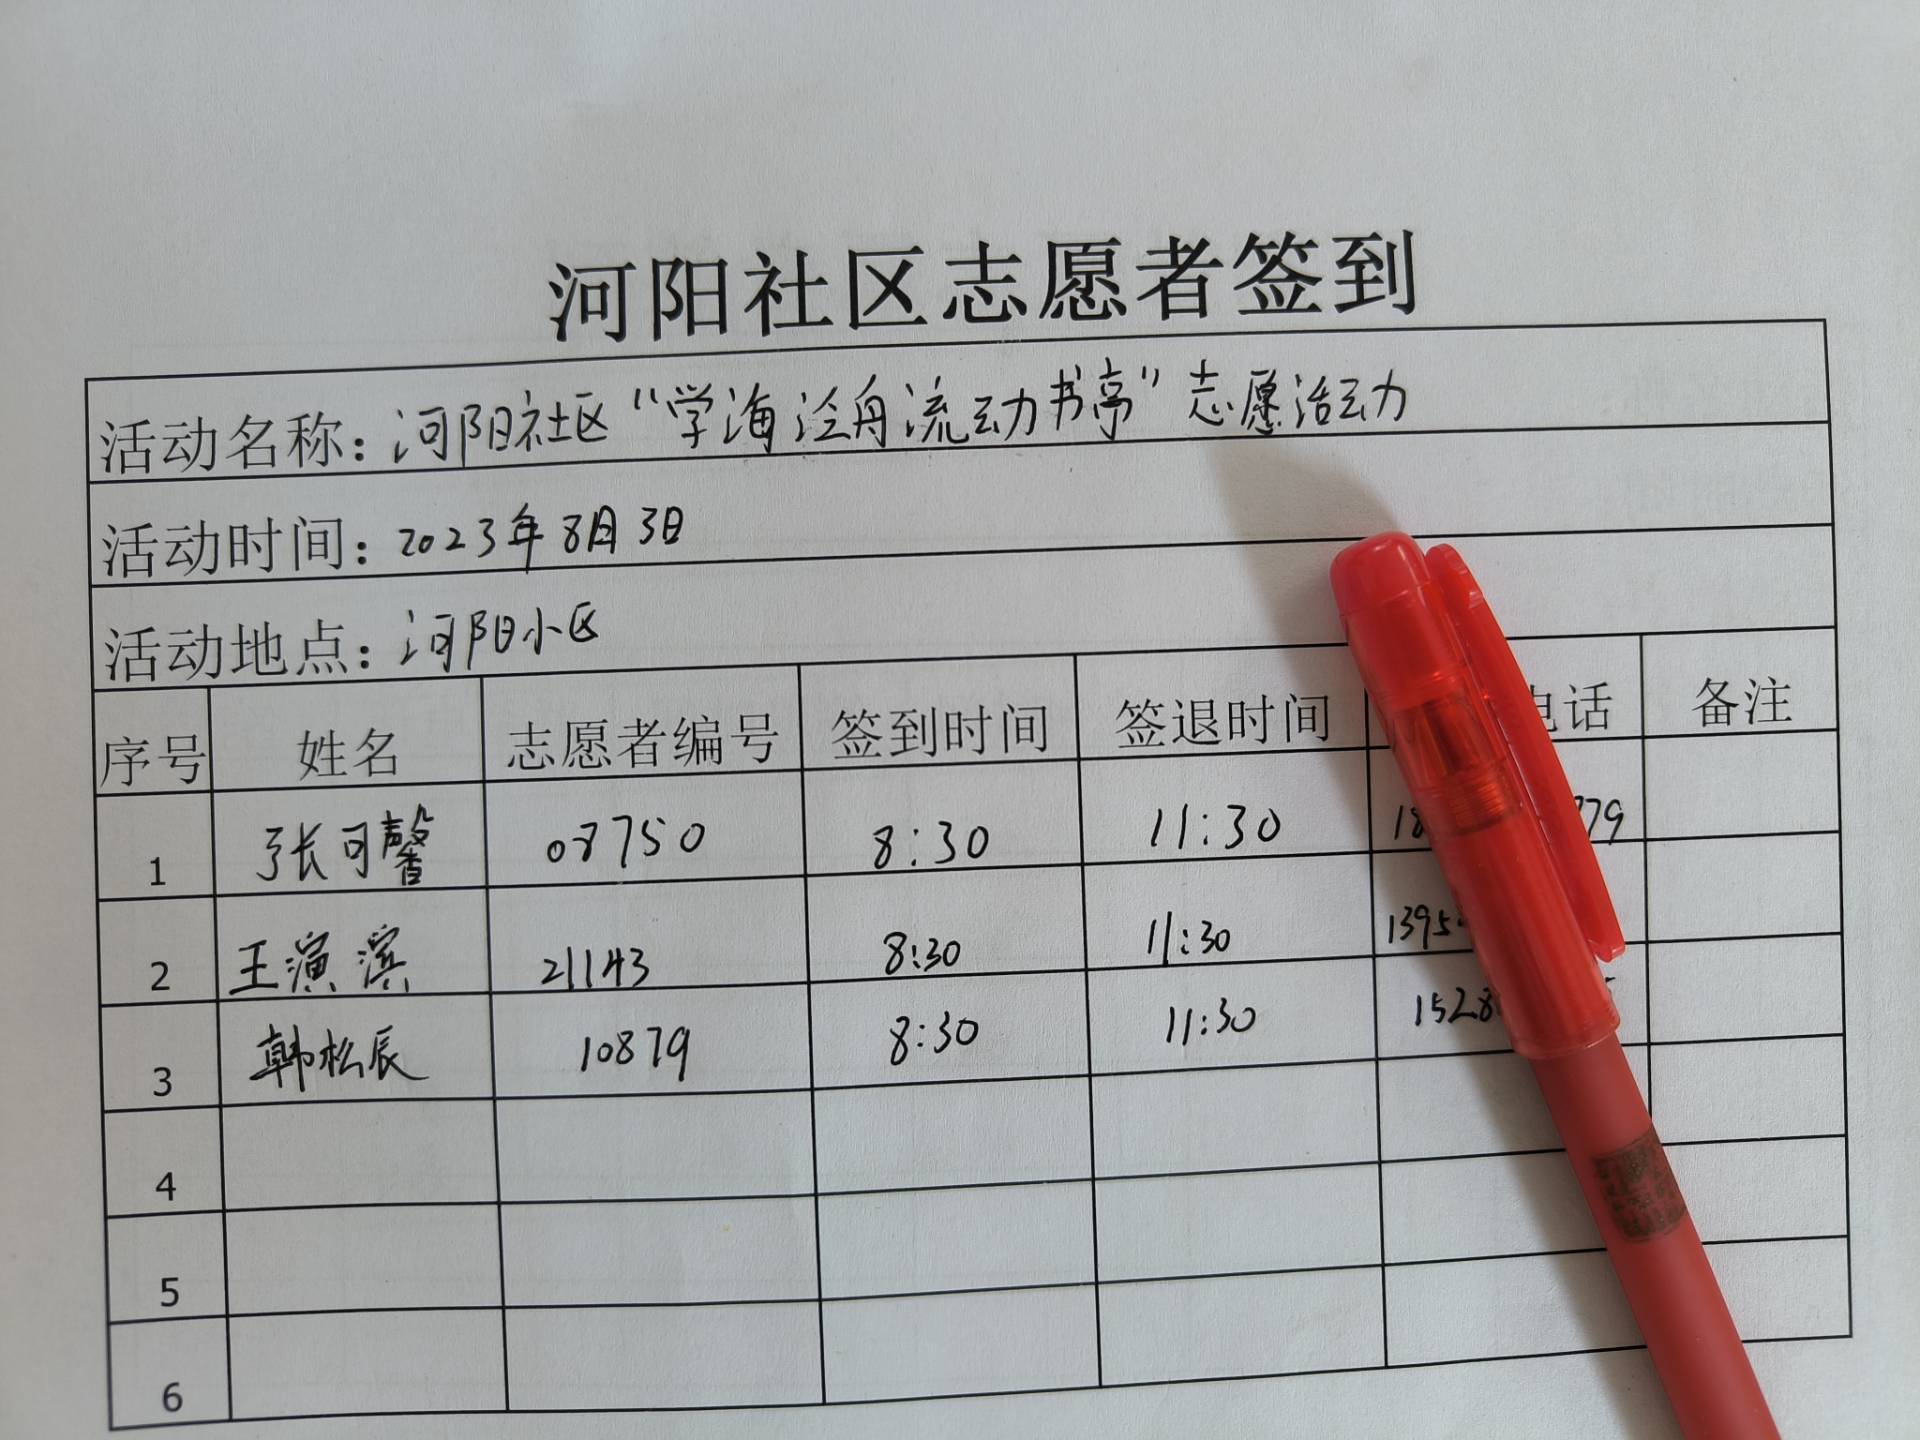 河阳社区志愿者签到
活动名称：河阳社区“学海泛舟流动书亭”志愿活动
活动时间：2023年8月3日
活动地点：河阳小区
序号 姓名 志愿者编号 签到时间 签退时间 电话 备注
1 张可馨 08750 8:30 11:30 18 779
2 王演滨 21143 8:30 11:30 1395
3 韩松辰 10879 8:30 11:30 1528
4
5
6